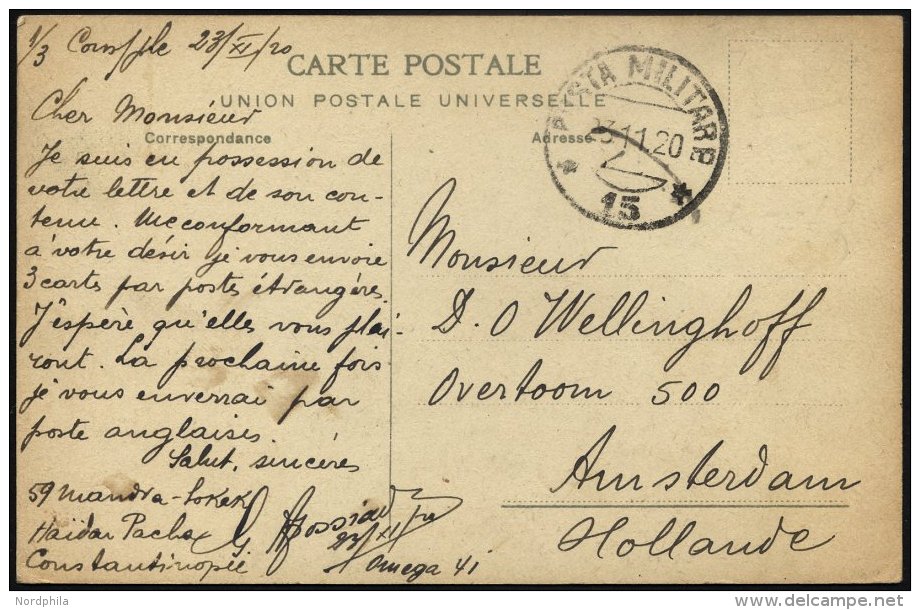 1/3 Cons/ple 23/XI/20
CARTE POSTALE
UNION POSTALE UNIVERSELLE
Correspondance
Adresse
POSTA MILITARE
23.11.20
15
Cher Monsieur
Je suis en possession de
votre lettre et de son con-
tenu. Me conformant
à votre désir je vous envoie
3 cartes par postes étrangéres.
J'éspère qu'elles vous plai-
ront. La prochaine fois
je vous enverrai par
poste anglaises.
Salut, sincéres
59 Mandra-Sokak
Haïdar Pacha
Constantinople
23/XI/20
Omega 41
Monsieur
D. O Wellinghoff
Overtoom 500
Amsterdam
Hollande
Nordphila
delcampe.net